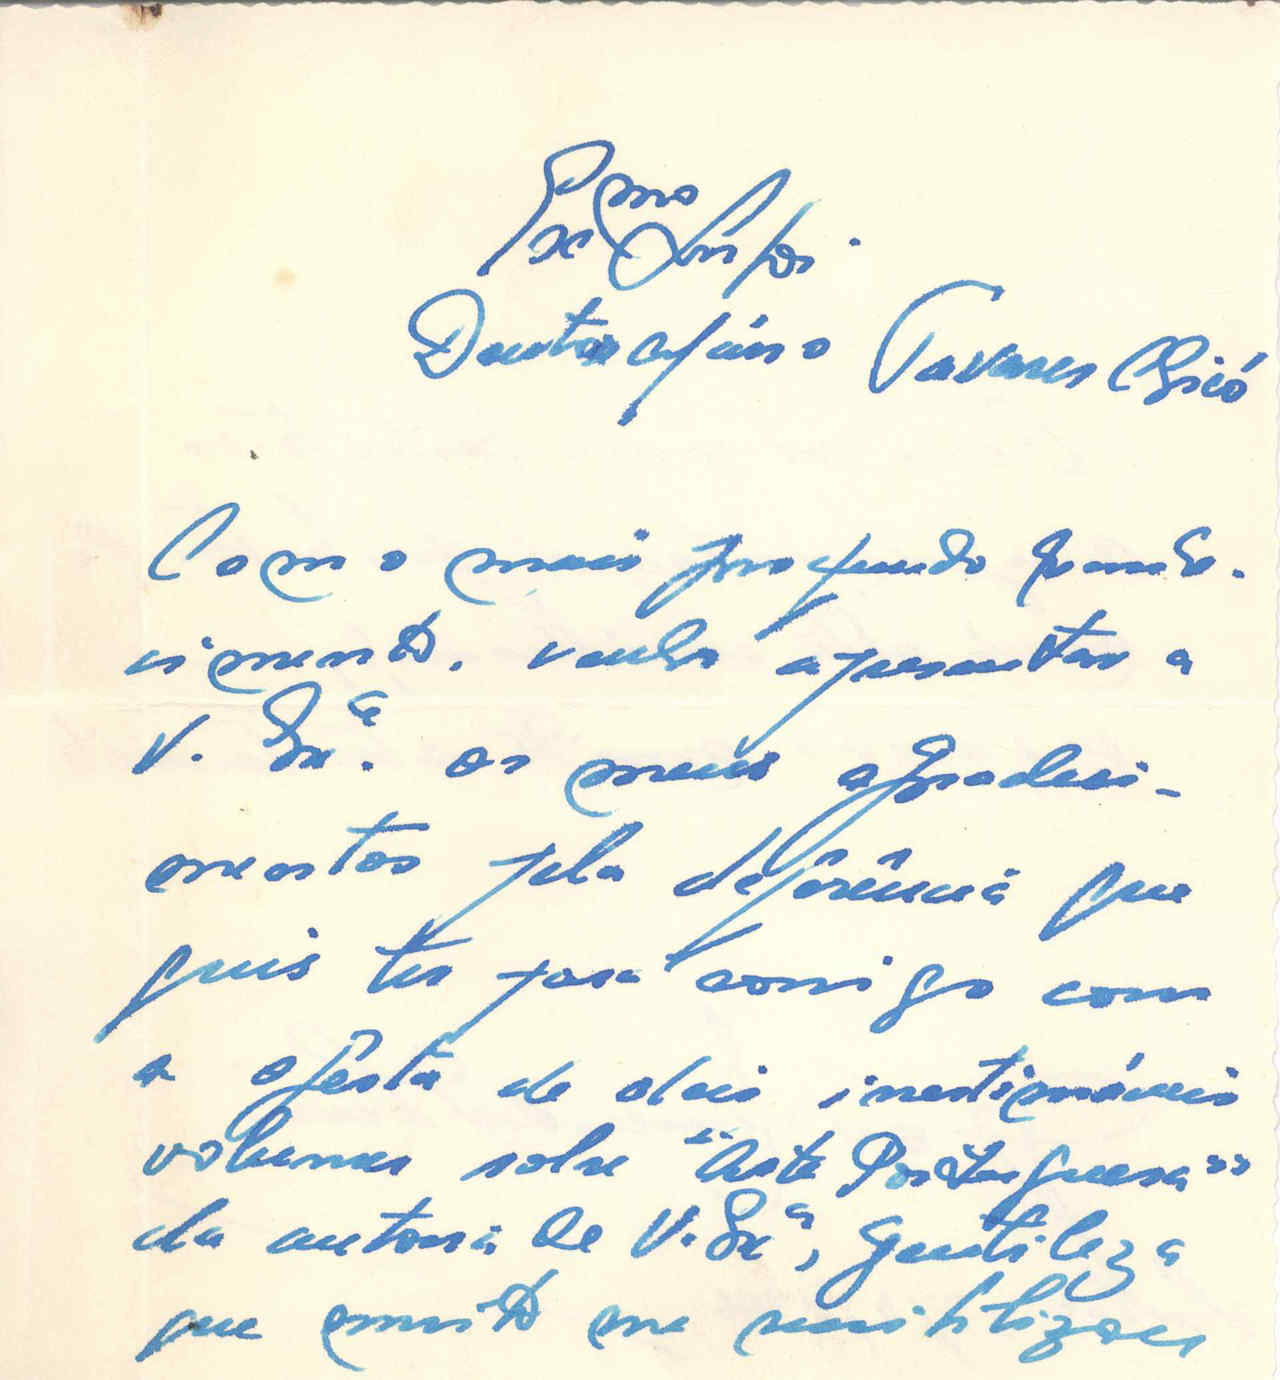 Exmo Senhor
Doutor Mário Tavares Chicó
Com o mais profundo reconhe-
cimento, venho apresentar a
V. Exª. os meus agradeci-
mentos pela deferência que
quis ter para comigo com
a oferta de dois inestimáveis
volumes sobre "Arte Portuguesa"
da autoria de V. Exª, gentileza
que muito me sensibilizou